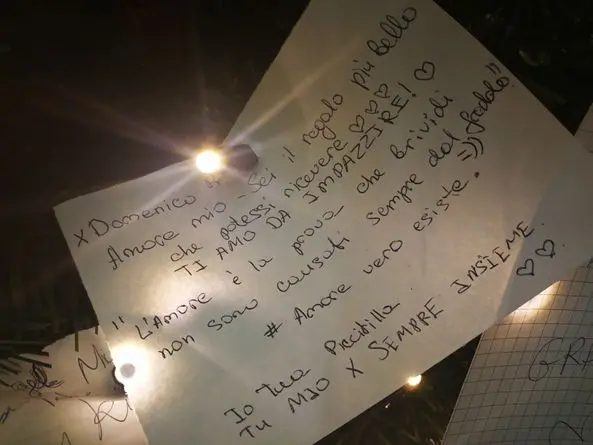 X Domenico
Amore mio - Sei il regalo più bello
che potessi ricevere ♡♡♡
TI AMO DA IMPAZZIRE! ♡
"L'Amore è la prova che brividi
non sono causati sempre dal freddo!"
# Amore vero esiste. =))
Io tua Piccidilla
TU MIO X SEMPRE INSIEME.
♡♡
GRA